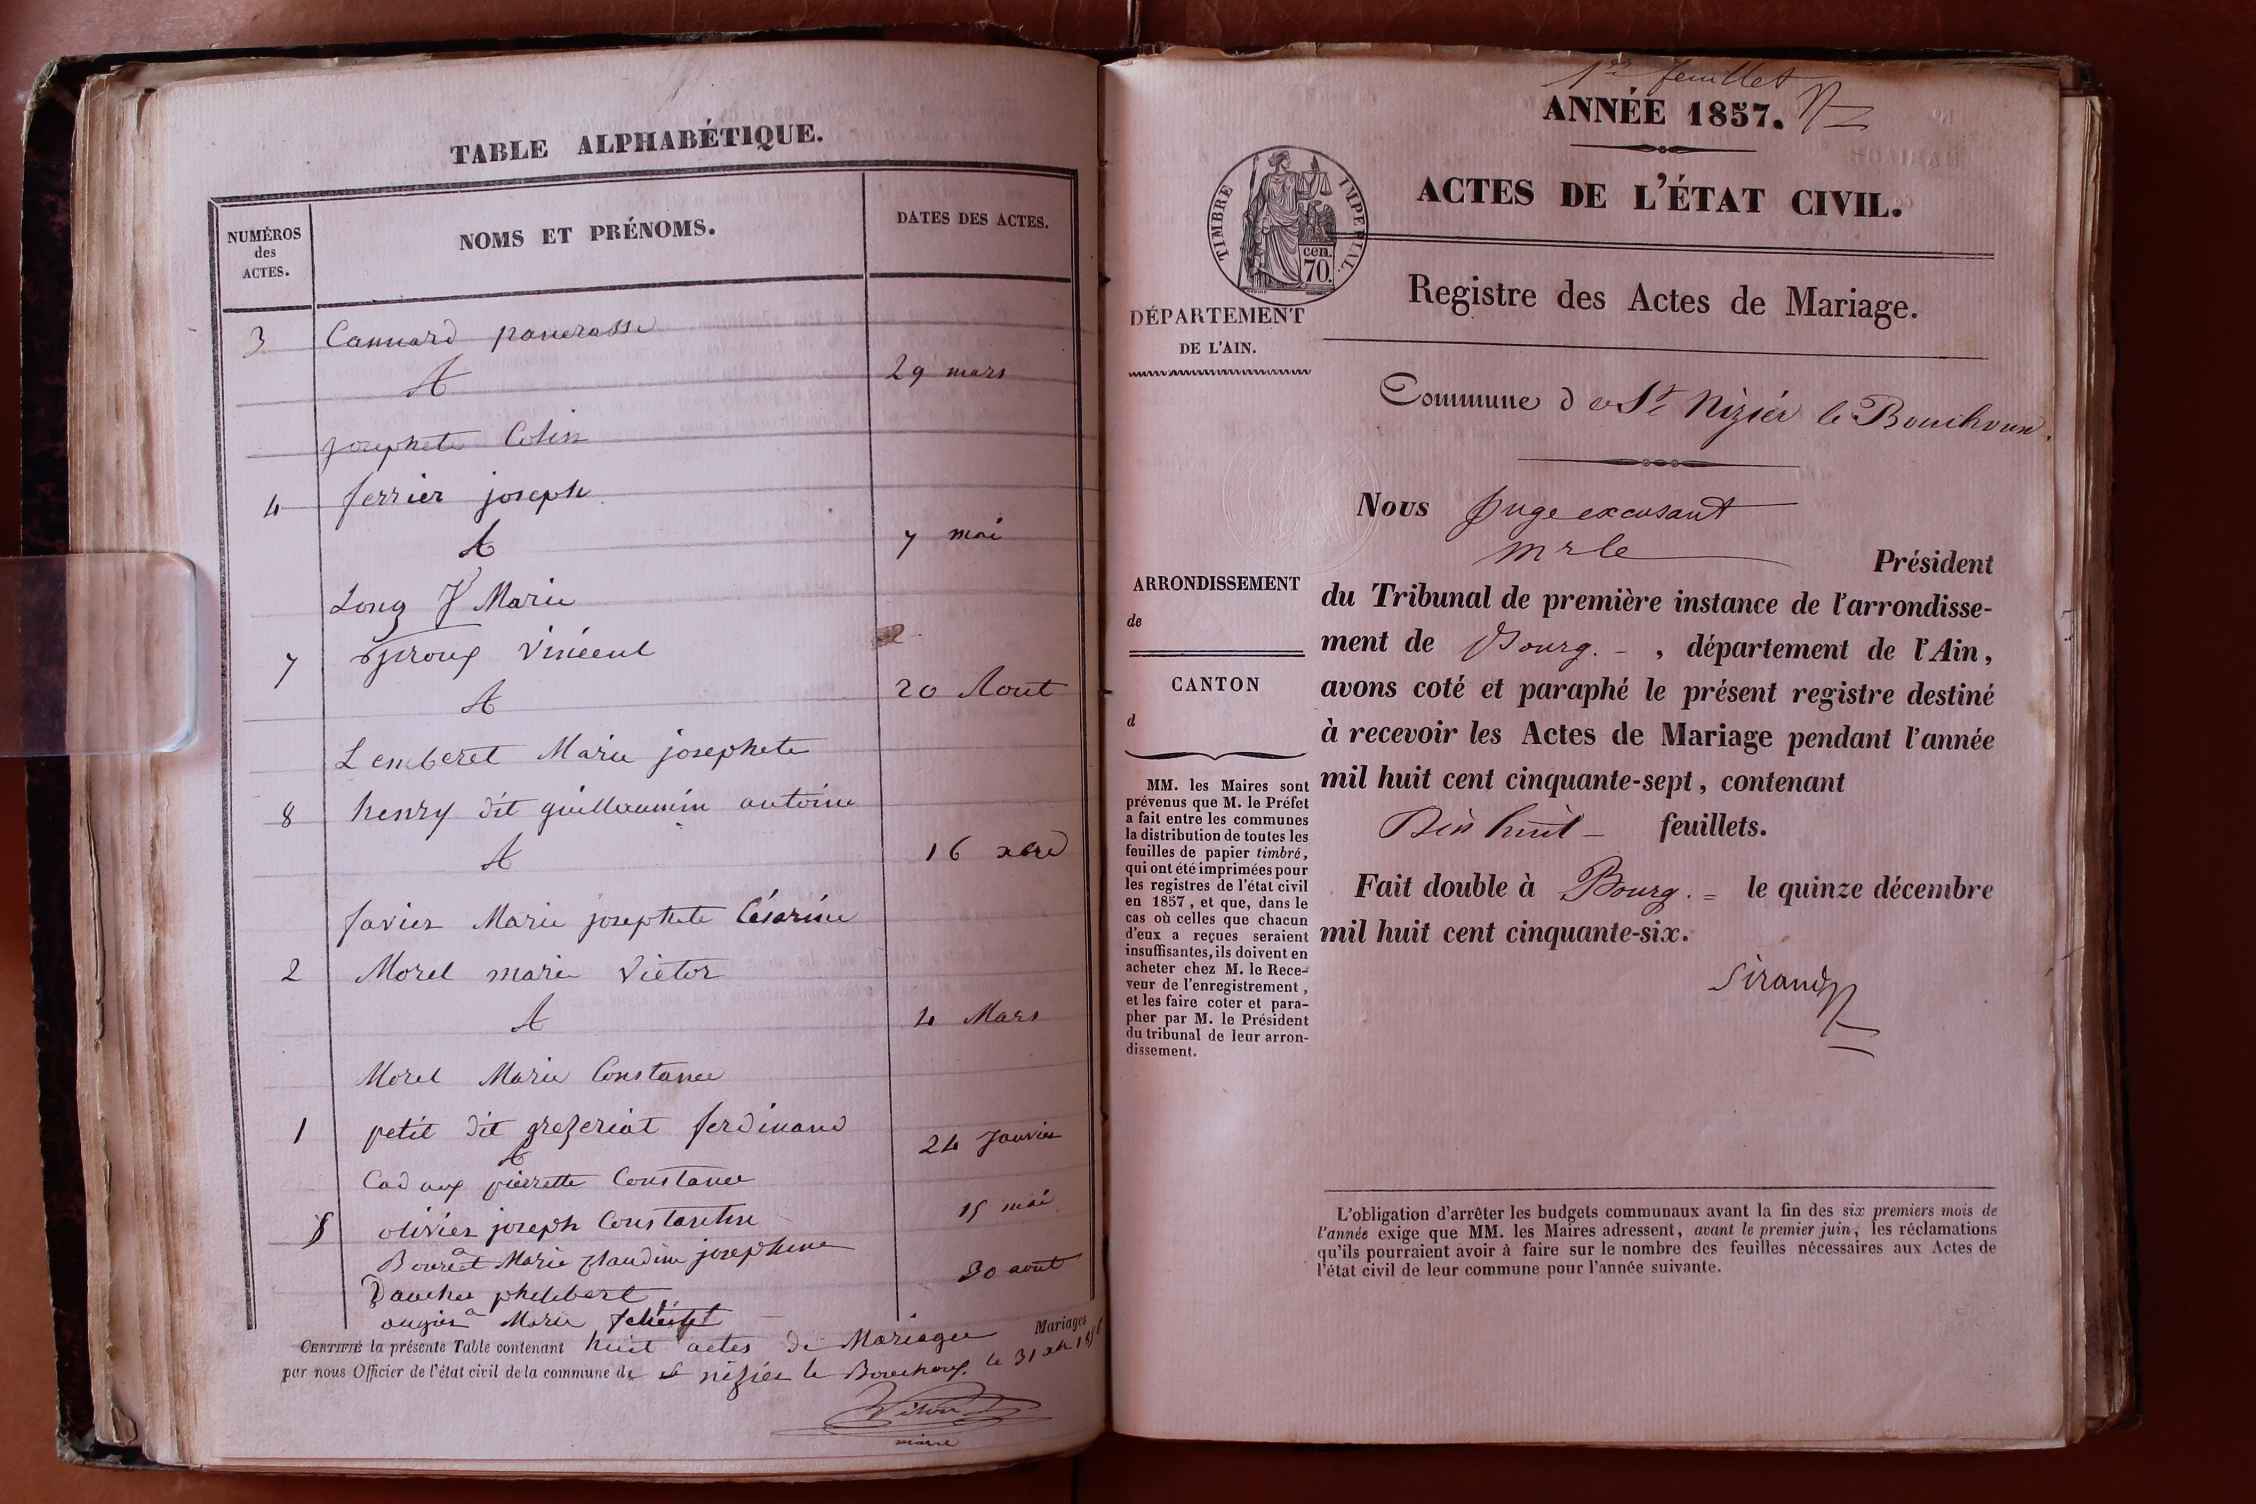 TABLE ALPHABÉTIQUE.
NUMÉROS
des
ACTES.
NOMS ET PRÉNOMS.
DATES DES ACTES.
3 Cannard pancrasse
A 29 mars
josephete Colin
4 ferrier joseph
A 7 mai
Long Marie
7 giroux Vincent
A 20 Aout
Lemberet Marie josephete
8 henry dit guillaumin antoine
A 16 xbre
favier Marie josephete Césarine
2 Morel marie Victor
A 4 Mars
Morel Marie Constance
1 petit dit grezeriat ferdinand
A 24 Janvier
Cadoux pierrette Constance
5 olivier joseph Constantin 15 mai
Bourcet Marie Claudine josephine
philibert 30 aout
Marie
CERTIFIÉ la présente Table contenant huit actes de Mariages Mariages
par nous Officier de l'état civil de la commune de st nizier le Bouchoux. le 31 xbre 1856
maire
1er feuillet
ANNÉE 1857.
ACTES DE L'ÉTAT CIVIL.
TIMBRE IMPERIAL.
cen.
70.
Registre des Actes de Mariage.
DÉPARTEMENT
DE L'AIN.
Commune de St Nizier le Bouchoux.
Nous juge excusant
Mr le Président
du Tribunal de première instance de l'arrondisse-
ment de Bourg. , département de l'Ain,
avons coté et paraphé le présent registre destiné
à recevoir les Actes de Mariage pendant l'année
mil huit cent cinquante-sept, contenant
Dix huit feuillets.
Fait double à Bourg. le quinze décembre
mil huit cent cinquante-six.
Sirand
ARRONDISSEMENT
de
CANTON
d
MM. les Maires sont
prévenus que M. le Préfet
a fait entre les communes
la distribution de toutes les
feuilles de papier timbré,
qui ont été imprimées pour
les registres de l'état civil
en 1857, et que, dans le
cas où celles que chacun
d'eux a reçues seraient
insuffisantes, ils doivent en
acheter chez M. le Rece-
veur de l'enregistrement,
et les faire coter et para-
pher par M. le Président
du tribunal de leur arron-
dissement.
L'obligation d'arrêter les budgets communaux avant la fin des six premiers mois de
l'année exige que MM. les Maires adressent, avant le premier juin, les réclamations
qu'ils pourraient avoir à faire sur le nombre des feuilles nécessaires aux Actes de
l'état civil de leur commune pour l'année suivante.